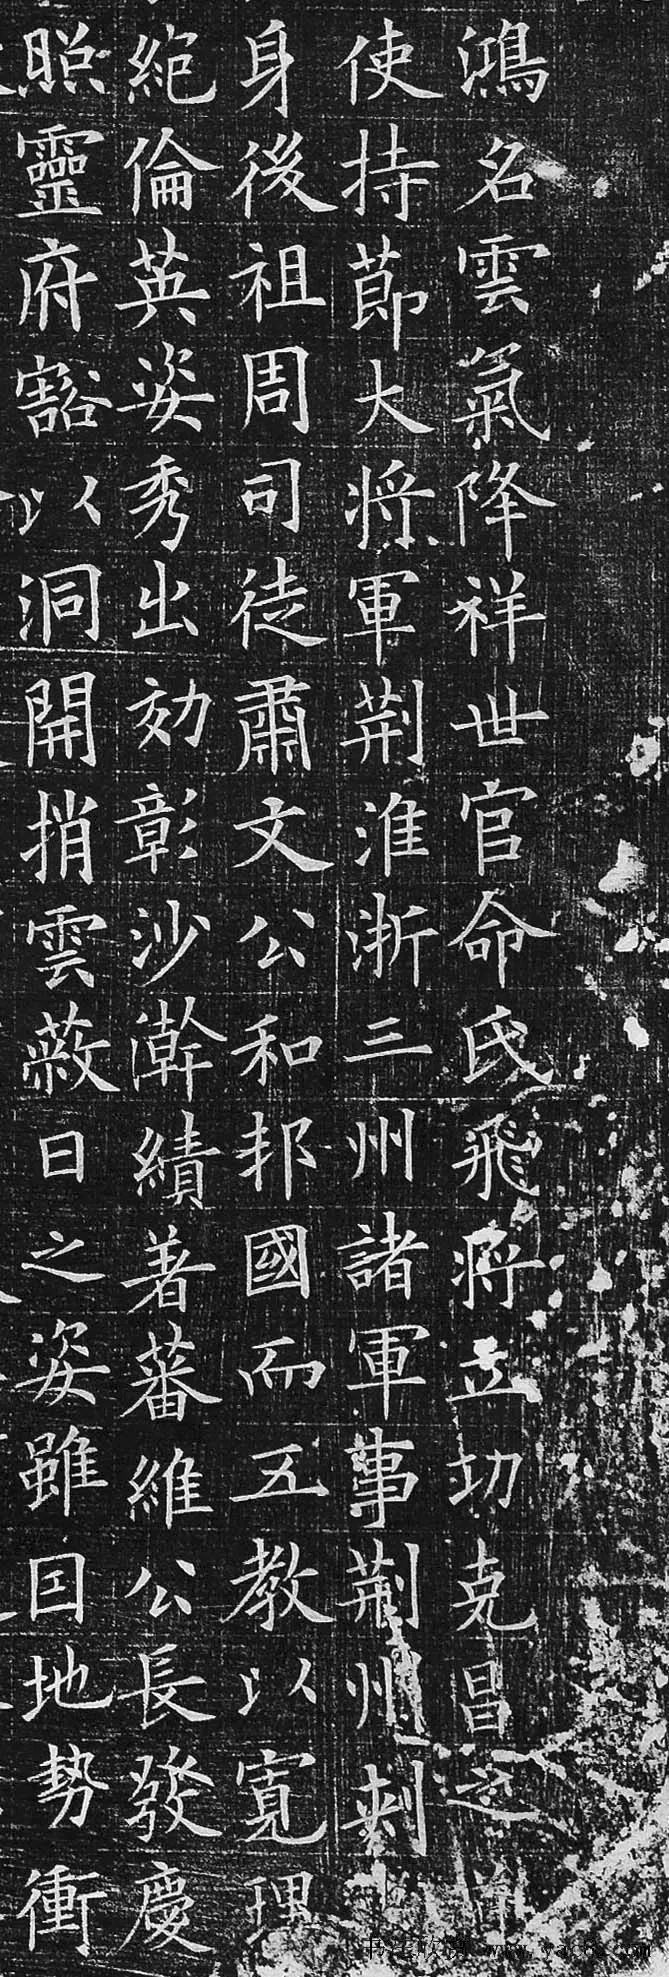 鴻名雲氣降祥世官命氏飛將立功克昌之
使持節大將軍荊淮浙三州諸軍事荊州刺
身後祖周司徒肅文公和邦國而五教以寬理
絕倫英姿秀出効彰沙澣績著蕃維公長發慶
照靈府豁以洞開捎雲蔽日之姿雖因地勢衝